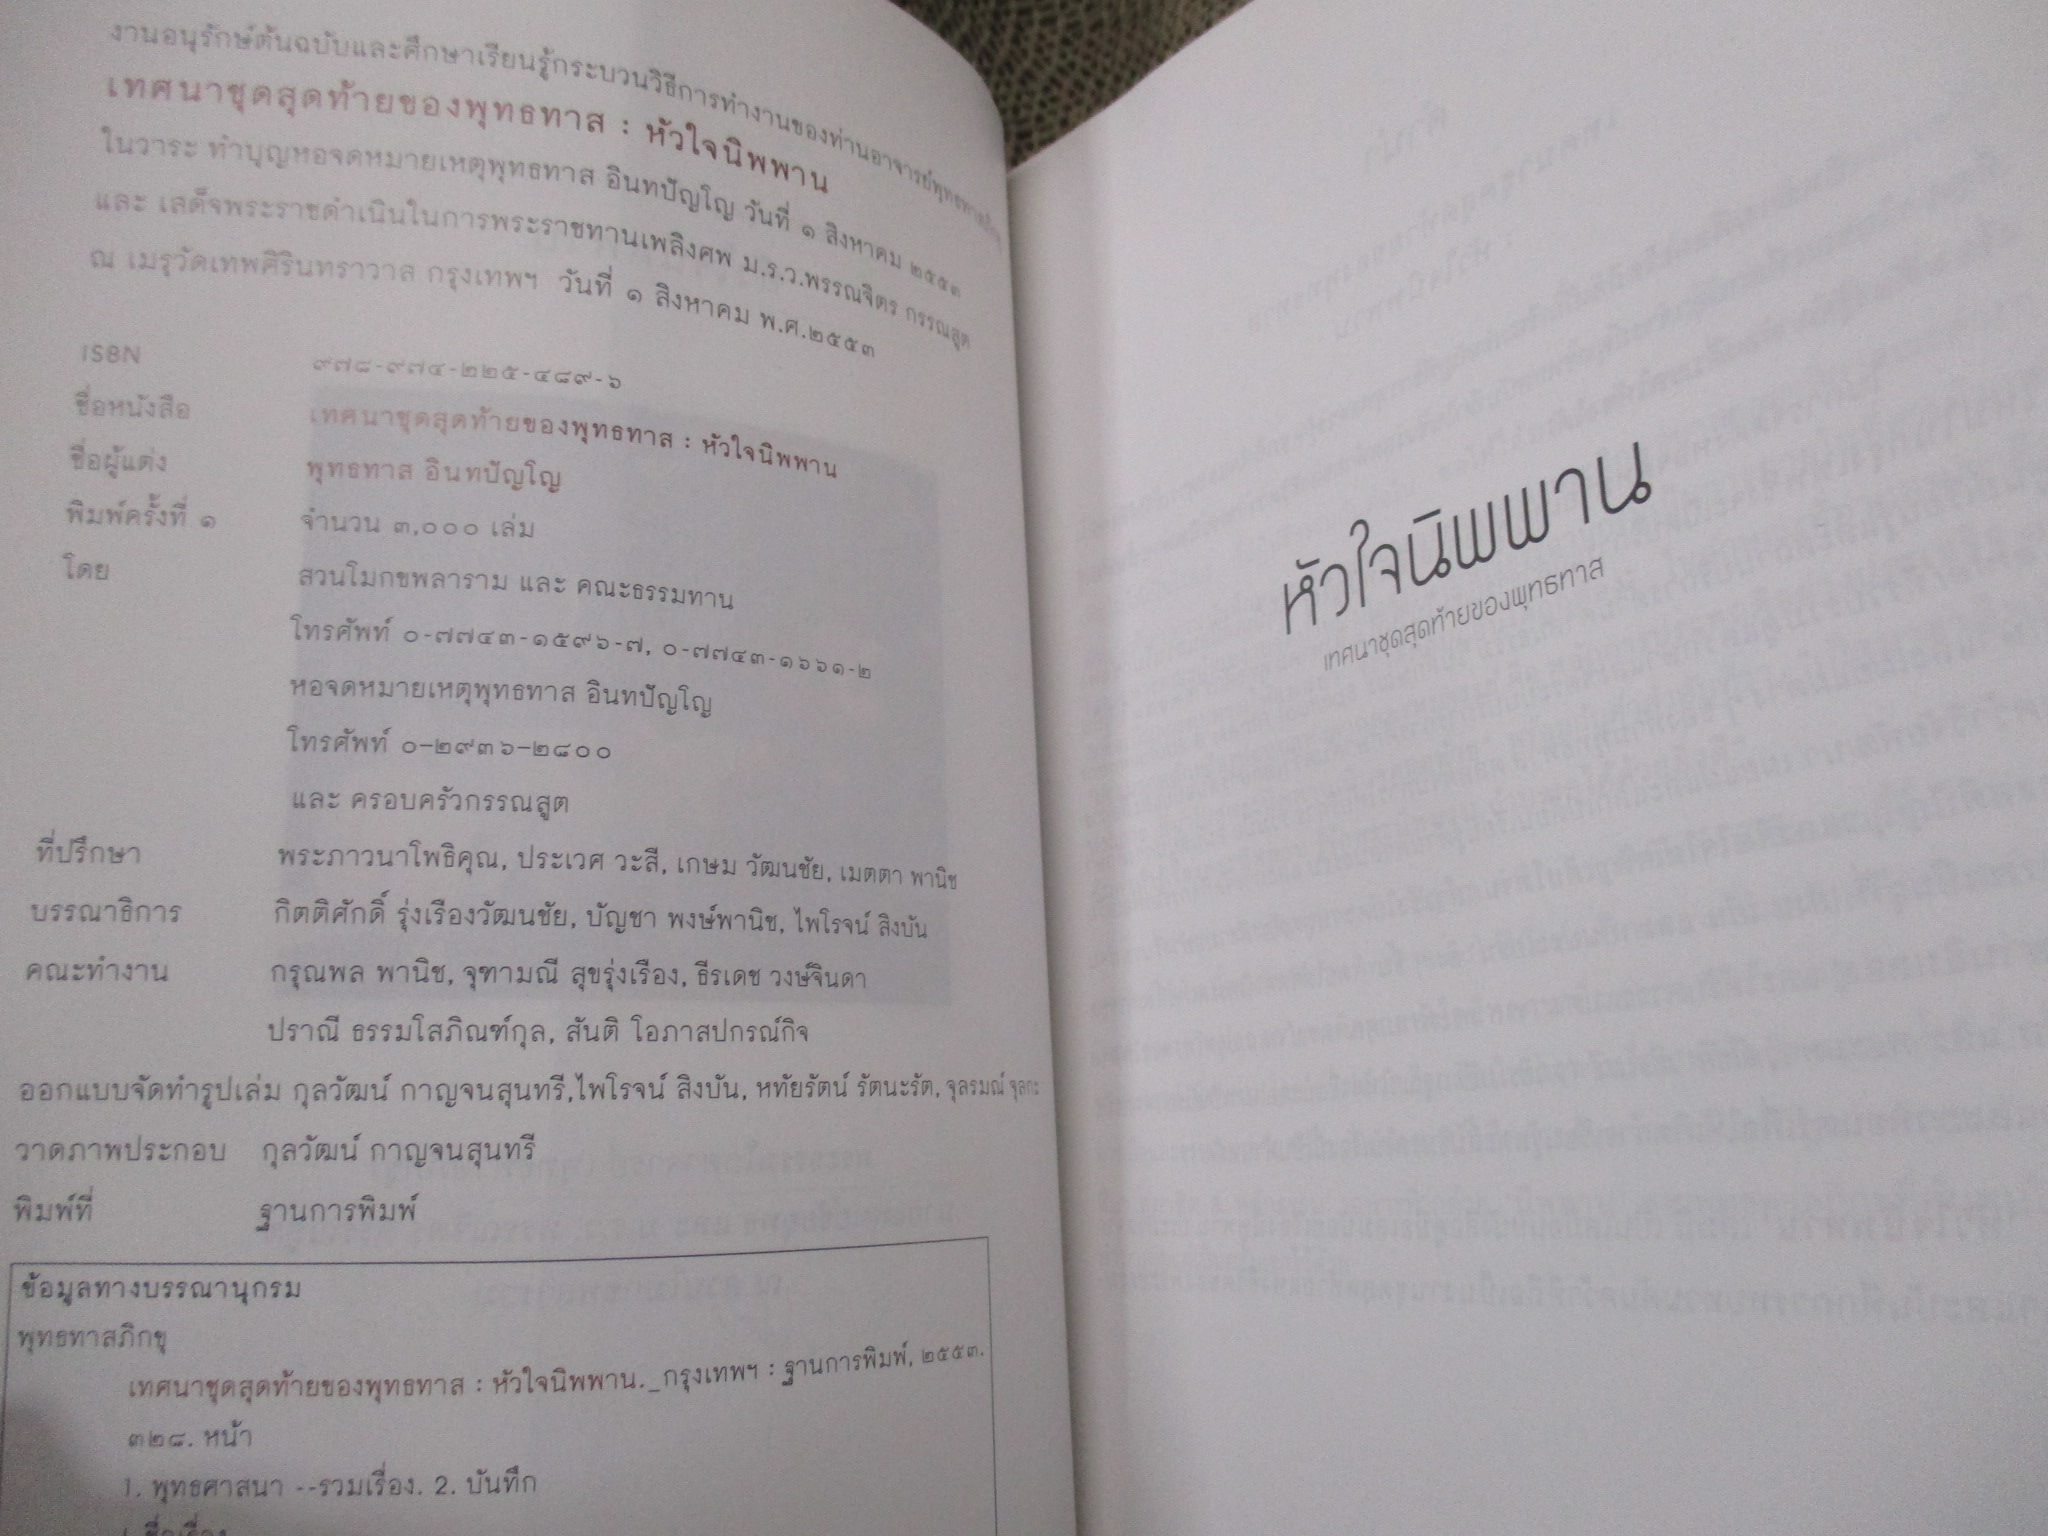 งานอนุรักษ์ต้นฉบับและศึกษาเรียนรู้กระบวนวิธีการทำงานของท่านอาจารย์พุทธทาสภิกขุ
เทศนาชุดสุดท้ายของพุทธทาส : หัวใจนิพพาน
ในวาระ ทำบุญหอจดหมายเหตุพุทธทาส อินทปัญโญ วันที่ ๑ สิงหาคม ๒๕๕๓
และ เสด็จพระราชดำเนินในการพระราชทานเพลิงศพ ม.ร.ว.พรรณจิตร กรรณสูต
ณ เมรุวัดเทพศิรินทราวาส กรุงเทพฯ วันที่ ๑ สิงหาคม พ.ศ.๒๕๕๓
ISBN ๙๗๘-๙๗๔-๒๒๕-๔๘๙-๖
ชื่อหนังสือ เทศนาชุดสุดท้ายของพุทธทาส : หัวใจนิพพาน
ชื่อผู้แต่ง พุทธทาส อินทปัญโญ
พิมพ์ครั้งที่ ๑ จำนวน ๓,๐๐๐ เล่ม
โดย สวนโมกขพลาราม และ คณะธรรมทาน
โทรศัพท์ ๐-๗๗๔๓-๑๕๙๖-๗, ๐-๗๗๔๓-๑๖๖๑-๒
หอจดหมายเหตุพุทธทาส อินทปัญโญ
โทรศัพท์ ๐–๒๙๓๖–๒๘๐๐
และ ครอบครัวกรรณสูต
ที่ปรึกษา พระภาวนาโพธิคุณ, ประเวศ วะสี, เกษม วัฒนชัย, เมตตา พานิช
บรรณาธิการ กิตติศักดิ์ รุ่งเรืองวัฒนชัย, บัญชา พงษ์พานิช, ไพโรจน์ สิงบัน
คณะทำงาน กรุณพล พานิช, จุฑามณี สุขรุ่งเรือง, ธีรเดช วงษ์จินดา
ปราณี ธรรมโสภิณฑ์กุล, สันติ โอภาสปกรณ์กิจ
ออกแบบจัดทำรูปเล่ม กุลวัฒน์ กาญจนสุนทรี,ไพโรจน์ สิงบัน, หทัยรัตน์ รัตนะรัต, จุลรมณ์
วาดภาพประกอบ กุลวัฒน์ กาญจนสุนทรี
พิมพ์ที่ ฐานการพิมพ์
ข้อมูลทางบรรณานุกรม
พุทธทาสภิกขุ
เทศนาชุดสุดท้ายของพุทธทาส : หัวใจนิพพาน._กรุงเทพฯ : ฐานการพิมพ์, ๒๕๕๓.
๓๒๘. หน้า
1. พุทธศาสนา --รวมเรื่อง. 2. บันทึก
หัวใจนิพพาน
เทศนาชุดสุดท้ายของพุทธทาส